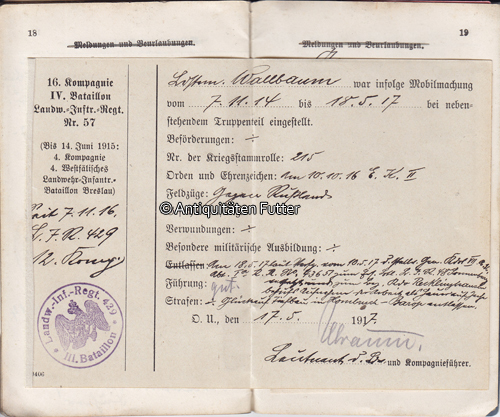 18
Meldungen und Beurlaubungen.
19
Meldungen und Beurlaubungen.
16. Kompagnie
IV. Bataillon
Landw.-Inftr.-Regt.
Nr. 57
(Bis 14. Juni 1915:
4. Kompagnie
4. Westfälisches
Landwehr-Infantr.-
Bataillon Breslau)
Seit 7.11.16
L. J. R. 429
12. Komp.
Landw.-Inf.-Regt. 429
III. Bataillon
Ldstm. Wallbaum war infolge Mobilmachung
vom 7.11.14 bis 18.5.17 bei neben-
stehendem Truppenteil eingestellt.
Beförderungen: ÷
Nr. der Kriegsstammrolle: 215
Orden und Ehrenzeichen: am 10.10.16 E. K. II
Feldzüge: Gegen Rußland
©Antiquitäten Futter
Verwundungen: ÷
Besondere militärische Ausbildung: ÷
Entlassen Am 18.5.17 laut Verfg. vom 10.5.17
Führung: gut.
Strafen:
O. U., den 17.5. 1917.
Leutnant d. R. und Kompagnieführer.